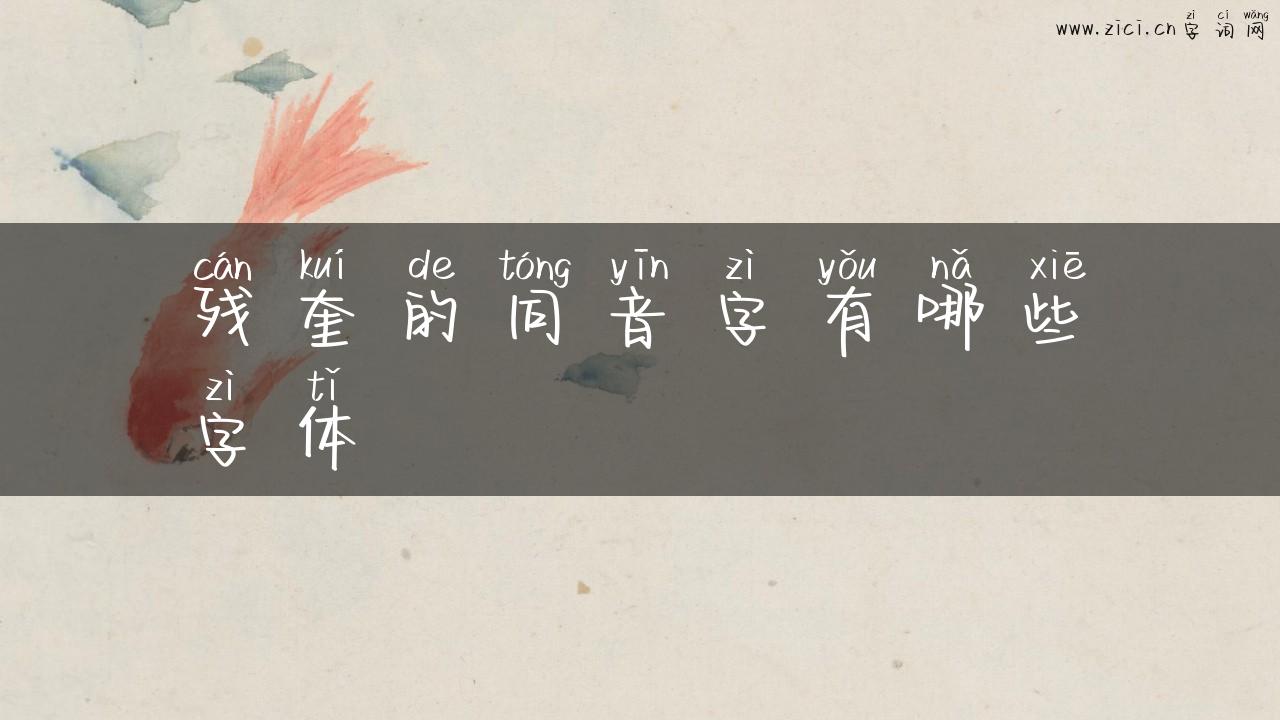 zì cí wǎng
www.zici.cn 字词网
cán kuí de tóng yīn zì yǒu nǎ xiē
残奎的同音字有哪些
zì tǐ
字体